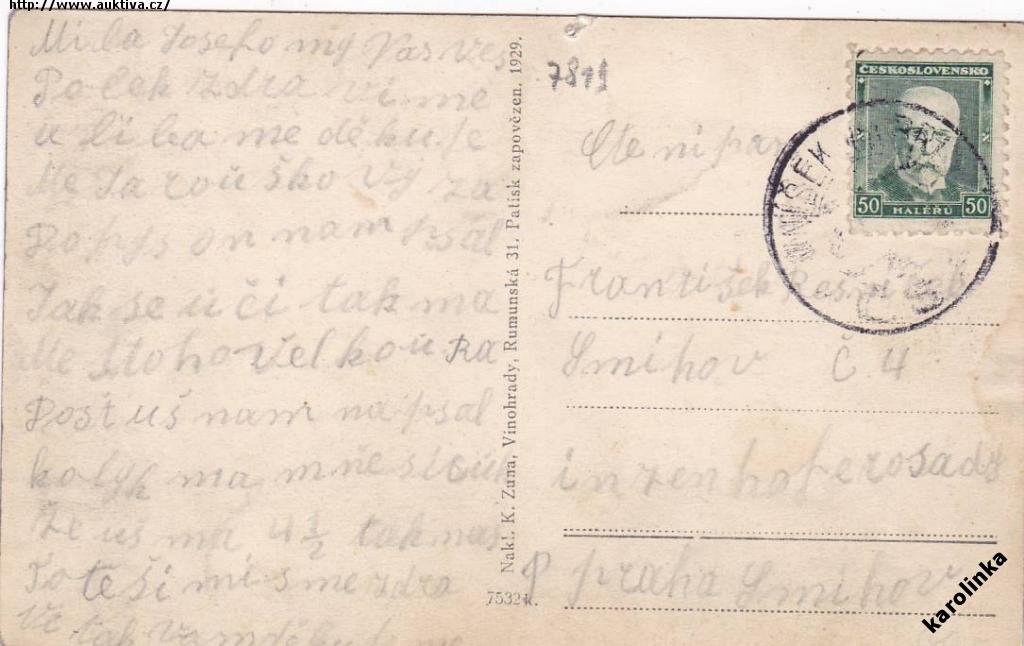 http://www.auktiva.cz/
Mila Josefo my Vas ves
Polek zdra vi me
a li ba me děku je
Me Ja rou ško Vy za
Do pys on nam psal
Jak se u čí tak ma
Me s toho velkou Ra
Dost uš nam na psal
kolyk ma mňesicuk
Že uš ma 4 1/2 tak nas
To te ší mi sme zdra
Ve tak Vam děkuje me
Nakl. K. Zuna, Vinohrady, Rumunská 31. Patisk zapovězen. 1929.
75324.
7819
ČESKOSLOVENSKO
50 HALÉŘŮ 50
MNÍŠEK
Cte ni pan
František
Smihov Č. 4
P praha Smihov
karolinka